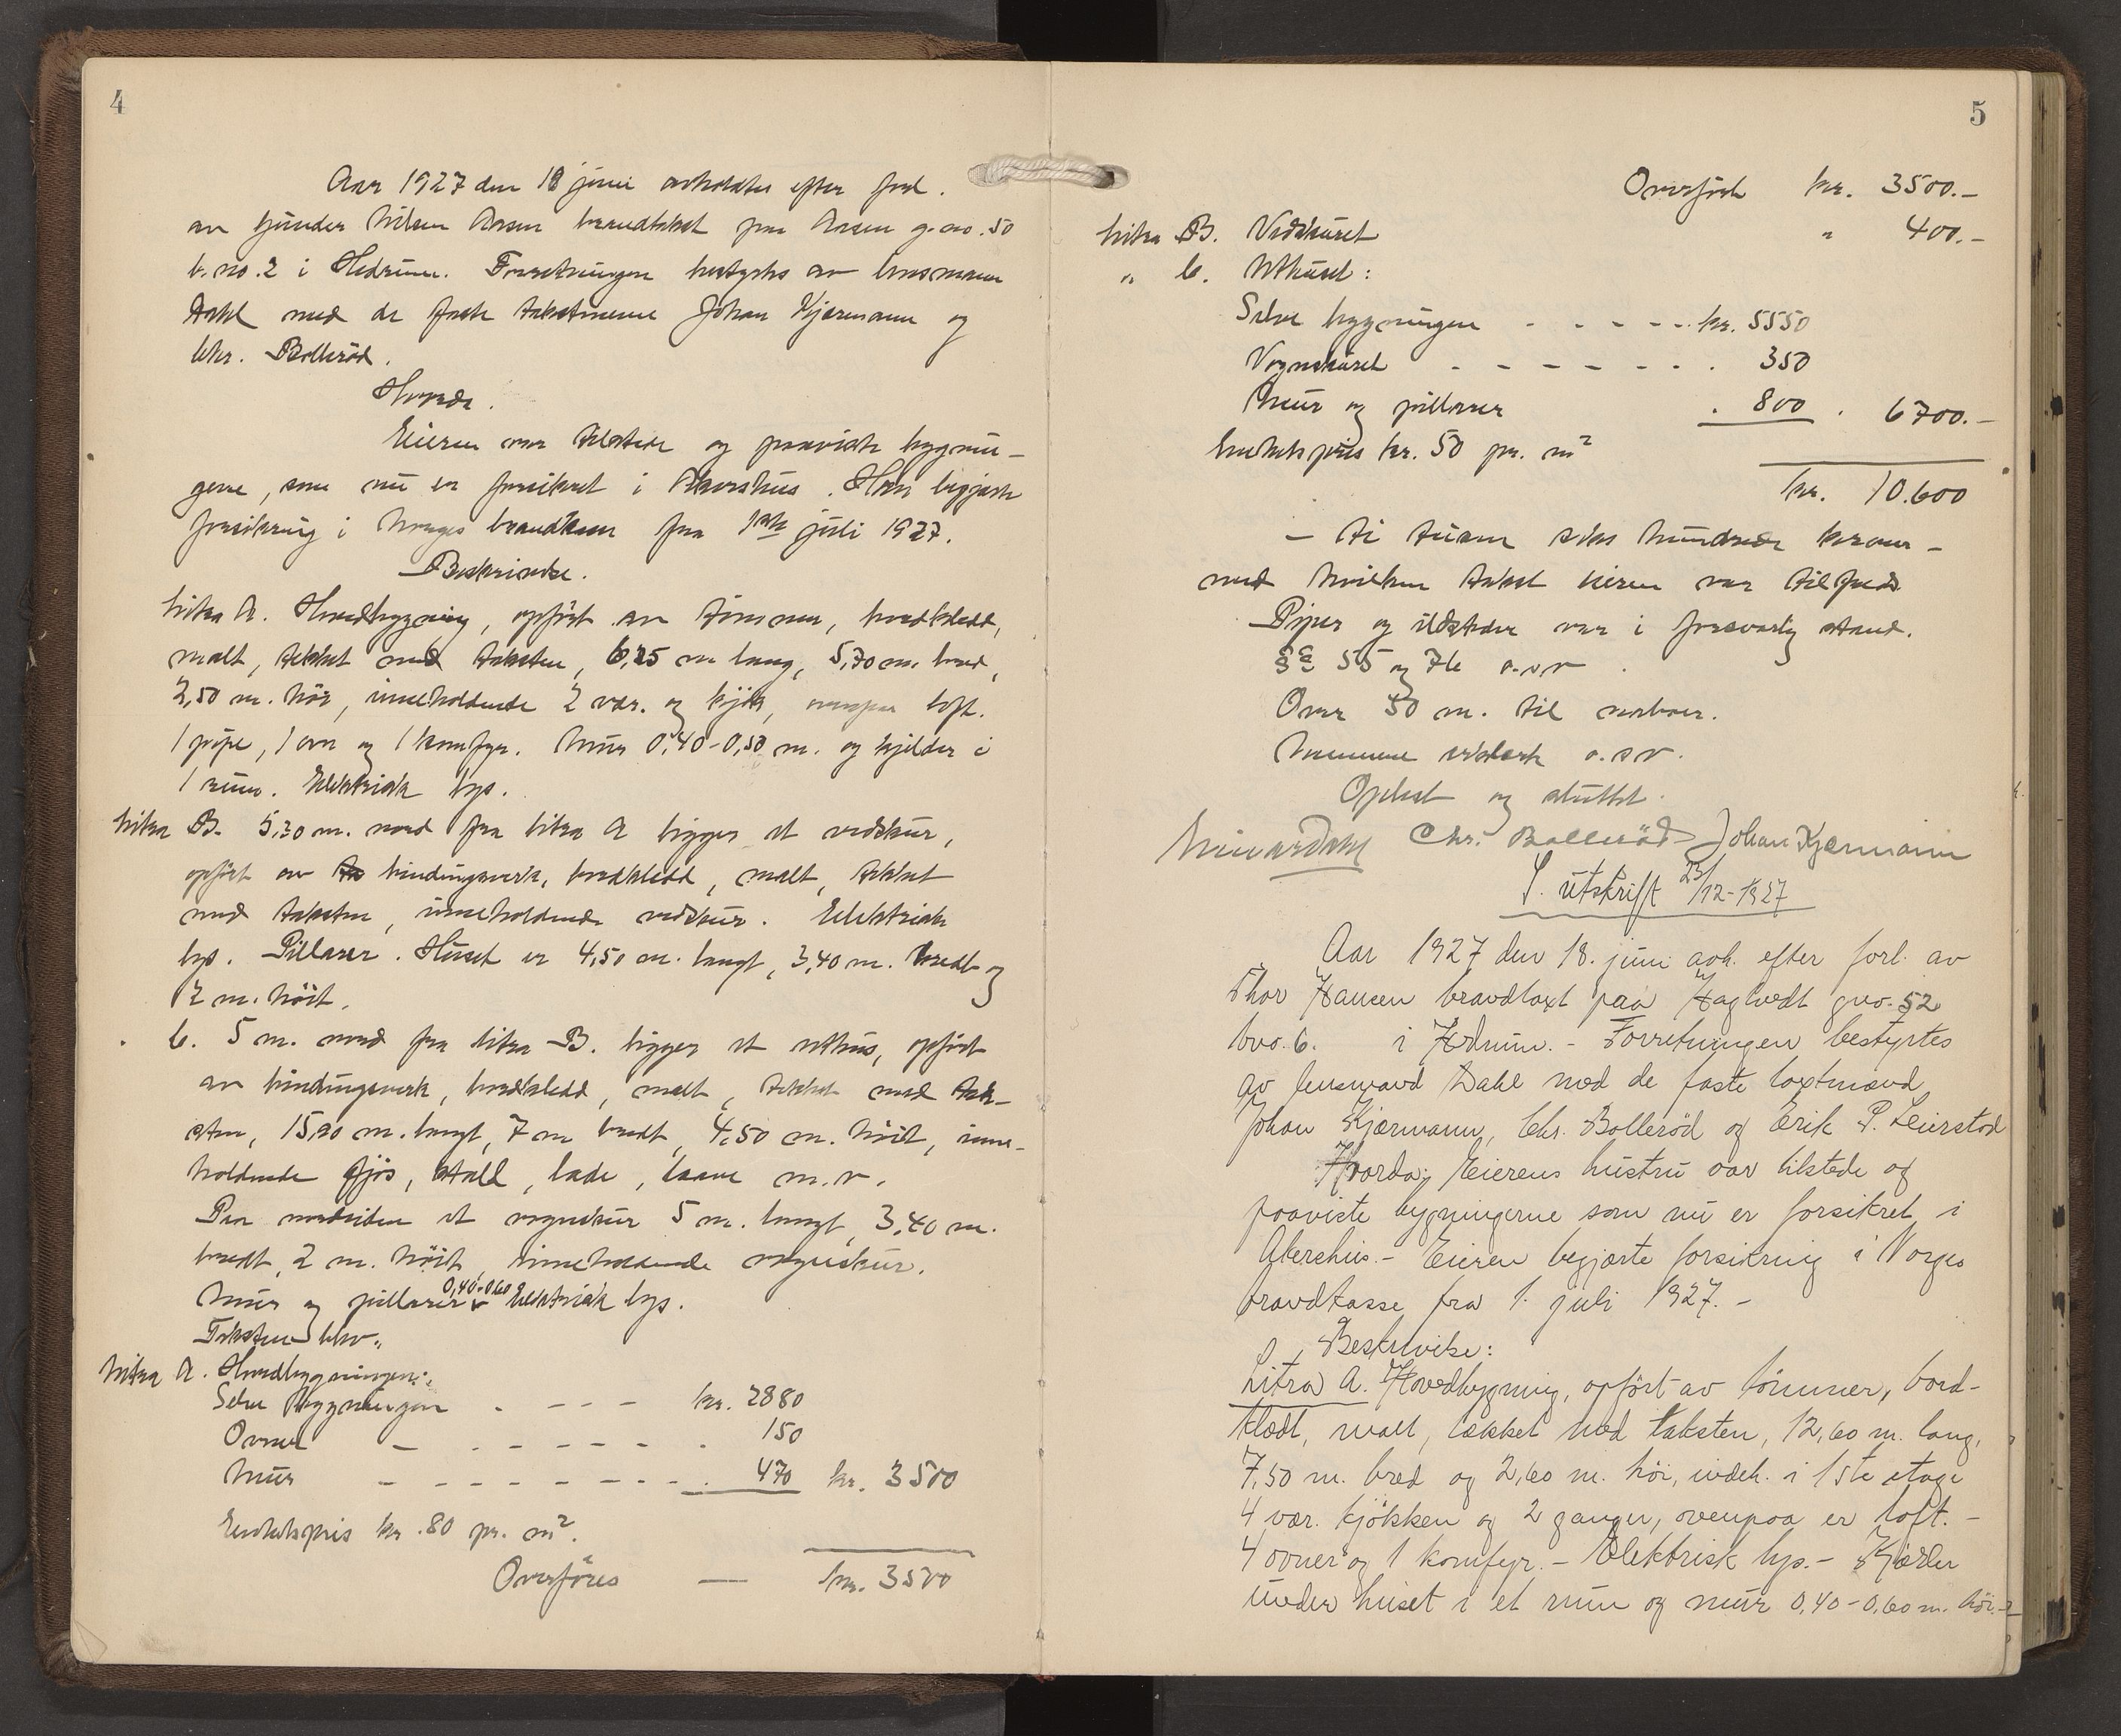 4
Aar 1927 den 18 juni avholdtes efter forl.
av Gunder Nilsen Aasen brandtakst paa Aasen g.no. 50
b.no. 2 i Hedrum. Forretningen bestyrtes av lensmann
Dahl med de faste takstmenn Johan Kjærmann og
Chr. Bollerød.
Hvorda.
Eieren var tilstede og paaviste bygnin-
gene, som nu er forsikret i Akershus. Han begjærte
forsikring i Norges brandkasse fra 1ste juli 1927.
Beskrivelse.
Litra A. Hovedbygning, opført av tømmer, bordkledd,
malt, tekket med taksten, 6,25 m lang, 5,70 m. bred,
2,50 m. høi, inneholdende 2 vær. og kjøk, ovenpaa loft.
1 pipe, 1 ovn og 1 komfyr. Mur 0,40-0,50 m. og kjelder i
1 rum. Elektrisk lys.
Litra B. 5,30 m. nord fra litra A ligger et vedskur,
opført av bindingsverk, bordkledd, malt, tekket
med taksten, inneholdende vedskur. Elektrisk
lys. Pillarer. Huset er 4,50 m. langt, 3,40 m. bredt og
2 m. høit.
" C. 5 m. nord fra litra B. ligger et uthus, opført
av bindingsverk, bordkledd, malt, tekket med tak-
sten, 15,90 m. langt, 7 m bredt, 4,50 m. høit, inne-
holdende fjøs, stall, lade, laave m.v.
Paa nordsiden et vognskur 5 m. langt, 3,40 m.
bredt, 2 m. høit, inneholdende vognskur.
Mur og pillarer 0,40-0,60 Elektrisk lys.
Taksten blev:
Litra A. Hovedbygningen:
Selve bygningen - - - - kr. 2880
Ovner - - - - - - - 150
Mur - - - - - - - - 470 kr. 3500
Enhetspris kr. 80 pr. m².
Overføres — kr. 3500
5
Overført kr. 3500.-
Litra B. Vedskuret " 400.-
" C. Uthuset:
Selve bygningen - - - - - kr. 5550
Vognskuret - - - - - - - 350
Mur og pillarer . 800 . 6700.-
Enhetspris kr. 50 pr. m²
kr. 10.600
- ti tusen seks hundrede kroner -
med hvilken takst eieren var tilfreds.
Piper og ildsteder var i forsvarlig stand.
§§ 55 og 76 o.s.v.
Over 50 m. til naboer.
Mennene erklærte o.s.v.
Oplest og sluttet.
Chr. Bollerød Johan Kjærmann
S. utskrift 23/12-1927
Aar 1927 den 18. juni avh. efter forl. av
Thor Hansen brandtaxt paa Hagtvedt gno. 52
bno. 6. i Hedrum. - Forretningen bestyrtes
av lensmand Dahl med de faste taxtmænd
Johan Kjærmann, Chr. Bollerød og Erik P. Leirstod
Hvorda; Eierens hustru var tilstede og
paaviste bygningerne som nu er forsikret i
Akershus. - Eieren begjærte forsikring i Norges
brandkasse fra 1. juli 1927. -
Beskrivelse:
Litra A. Hovedbygning, opført av tømmer, bord-
klædt, malt, tækket med taksten, 12,60 m. lang,
7,50 m. bred og 2,60 m. høi, indeh. i 1ste etage
4 vær. kjøkken og 2 ganger, ovenpaa er loft. -
4 ovner og 1 komfyr. - Elektrisk lys. - Kjælder
under huset i et rum og mur 0,40-0,60 m. høi. -